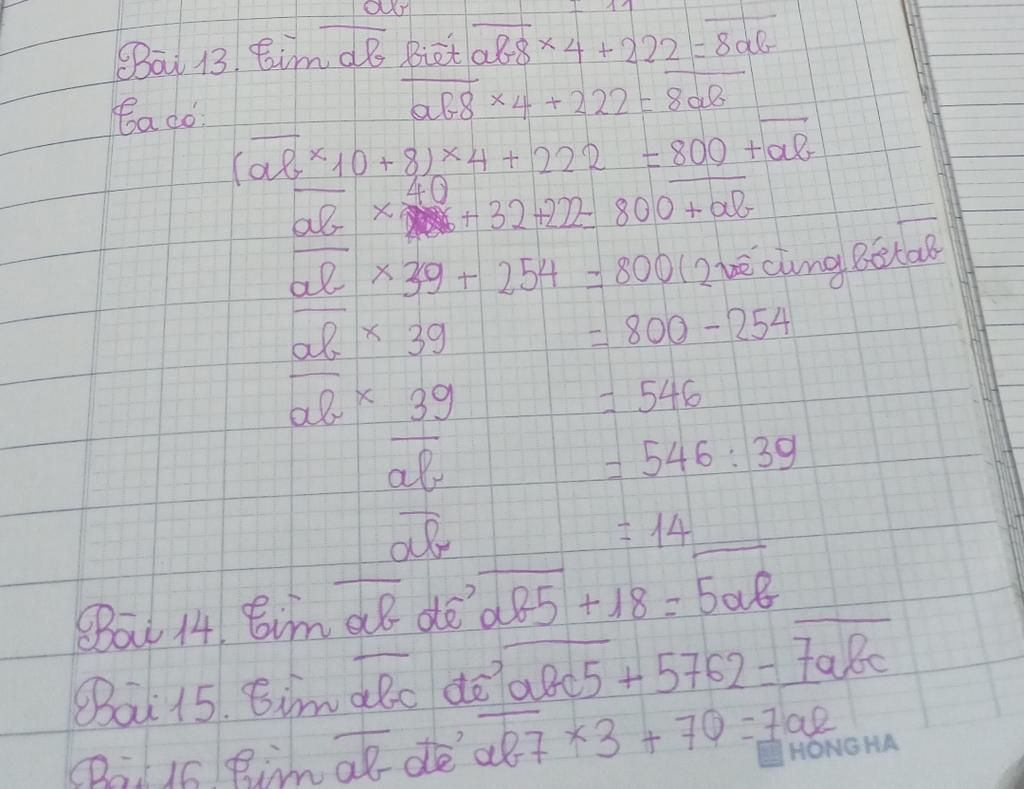 ab = 11
Bài 13. Tìm ab biết ab8 × 4 + 222 = 8ab
Ta có: ab8 × 4 + 222 = 8ab
(ab × 10 + 8) × 4 + 222 = 800 + ab
ab × 40 + 32 + 222 = 800 + ab
ab × 39 + 254 = 800 (2 vế cùng bớt ab
ab × 39 = 800 - 254
ab × 39 = 546
ab = 546 : 39
ab = 14
Bài 14. Tìm ab để ab5 + 18 = 5ab
Bài 15. Tìm abc để abc5 + 5762 = 7abc
Bài 16. Tìm ab để ab7 × 3 + 70 = 7ab
HONG HA